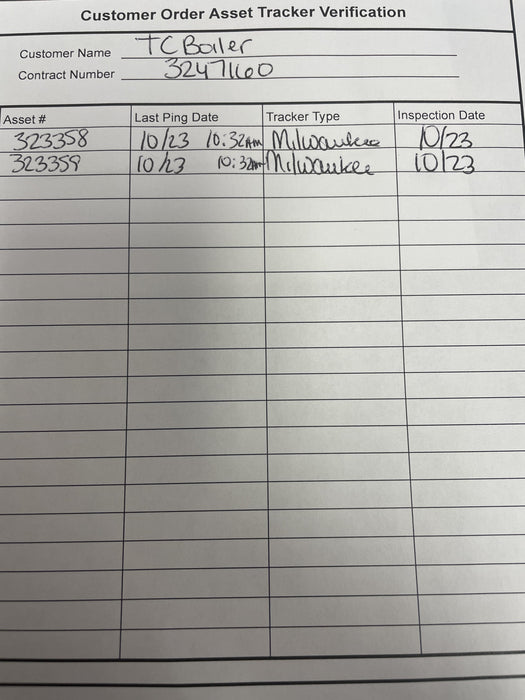 Customer Order Asset Tracker Verification
Customer Name TC Boiler
Contract Number 32471160
Asset # Last Ping Date Tracker Type Inspection Date
323358 10/23 10:32AM Milwaukee 10/23
323359 10/23 10:32AM Milwaukee 10/23